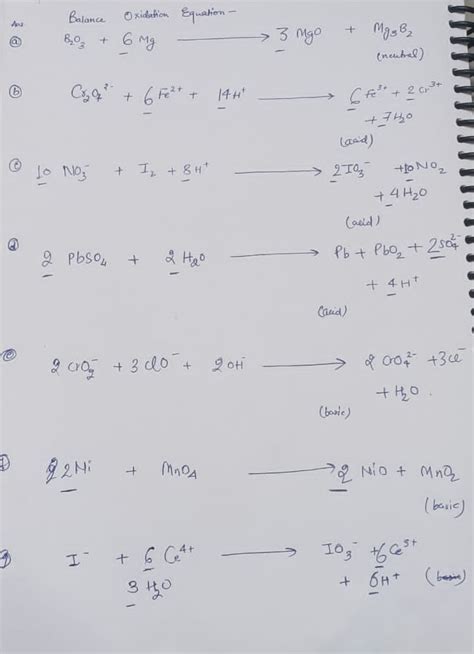 Ans Balance Oxidation Equation-
(a) B₂O₃ + 6 Mg ⟶ 3 MgO + Mg₃B₂
(neutral)
(b) Cr₂O₇²⁻ + 6 Fe²⁺ + 14H⁺ ⟶ 6 Fe³⁺ + 2 Cr³⁺
+ 7H₂O
(acid)
(c) 10 NO₃⁻ + I₂ + 8H⁺ ⟶ 2IO₃⁻ + 10NO₂
+ 4H₂O
(acid)
(d) 2 PbSO₄ + 2 H₂O ⟶ Pb + PbO₂ + 2SO₄²⁻
+ 4H⁺
(acid)
(e) 2 CrO₂⁻ + 3 ClO⁻ + 2OH⁻ ⟶ 2 CrO₄²⁻ + 3Cl⁻
+ H₂O.
(basic)
2Ni + MnO₄ ⟶ 2 NiO + MnO₂
(basic)
I⁻ + 6 Ce⁴⁺ ⟶ IO₃⁻ + 6Ce³⁺
3 H₂O + 6H⁺